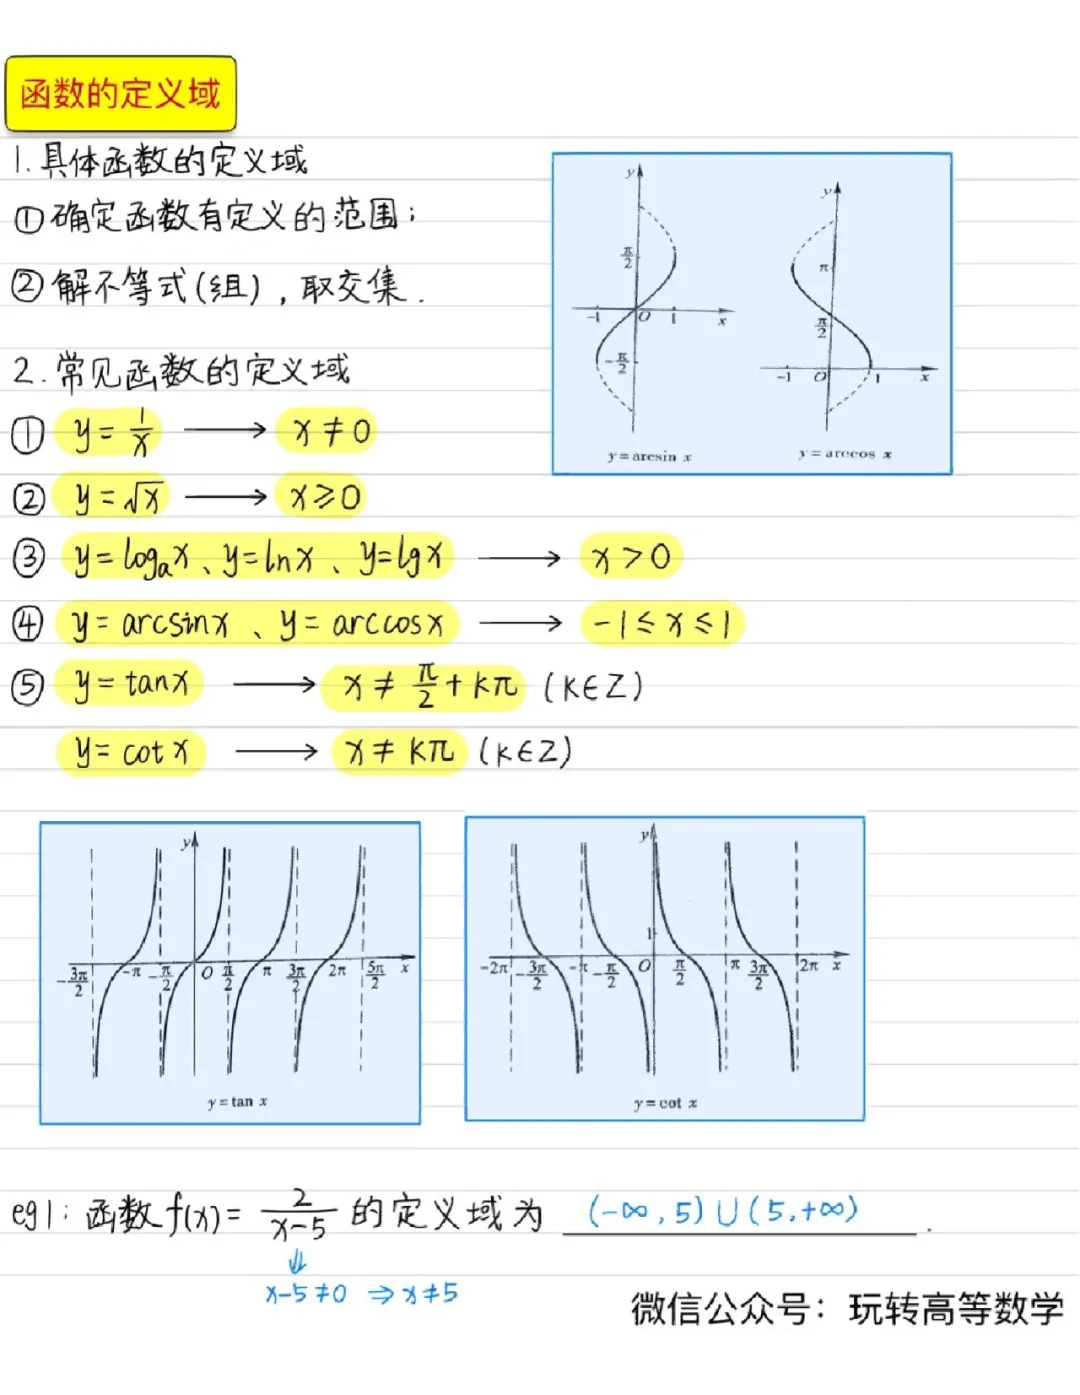 函数的定义域
1.具体函数的定义域
①确定函数有定义的范围；
②解不等式(组)，取交集.
2.常见函数的定义域
① y=1/x ⟶ x≠0
② y=√x ⟶ x≥0
③ y=logₐx、y=lnx、y=lgx ⟶ x>0
④ y=arcsinx、y=arccosx ⟶ -1≤x≤1
⑤ y=tanx ⟶ x≠π/2+kπ (k∈Z)
y=cotx ⟶ x≠kπ (k∈Z)
y
π/2
-1 O 1 x
-π/2
y=arcsin x
y
π
π/2
-1 O 1 x
y=arccos x
y
-3π/2 -π -π/2 O π/2 π 3π/2 2π 5π/2 x
y=tan x
y
1
-2π -3π/2 -π -π/2 O π/2 π 3π/2 2π x
y=cot x
eg1:函数f(x)=2/(x-5)的定义域为 (-∞,5)∪(5,+∞).
⇓
x-5≠0 ⇒x≠5
微信公众号：玩转高等数学